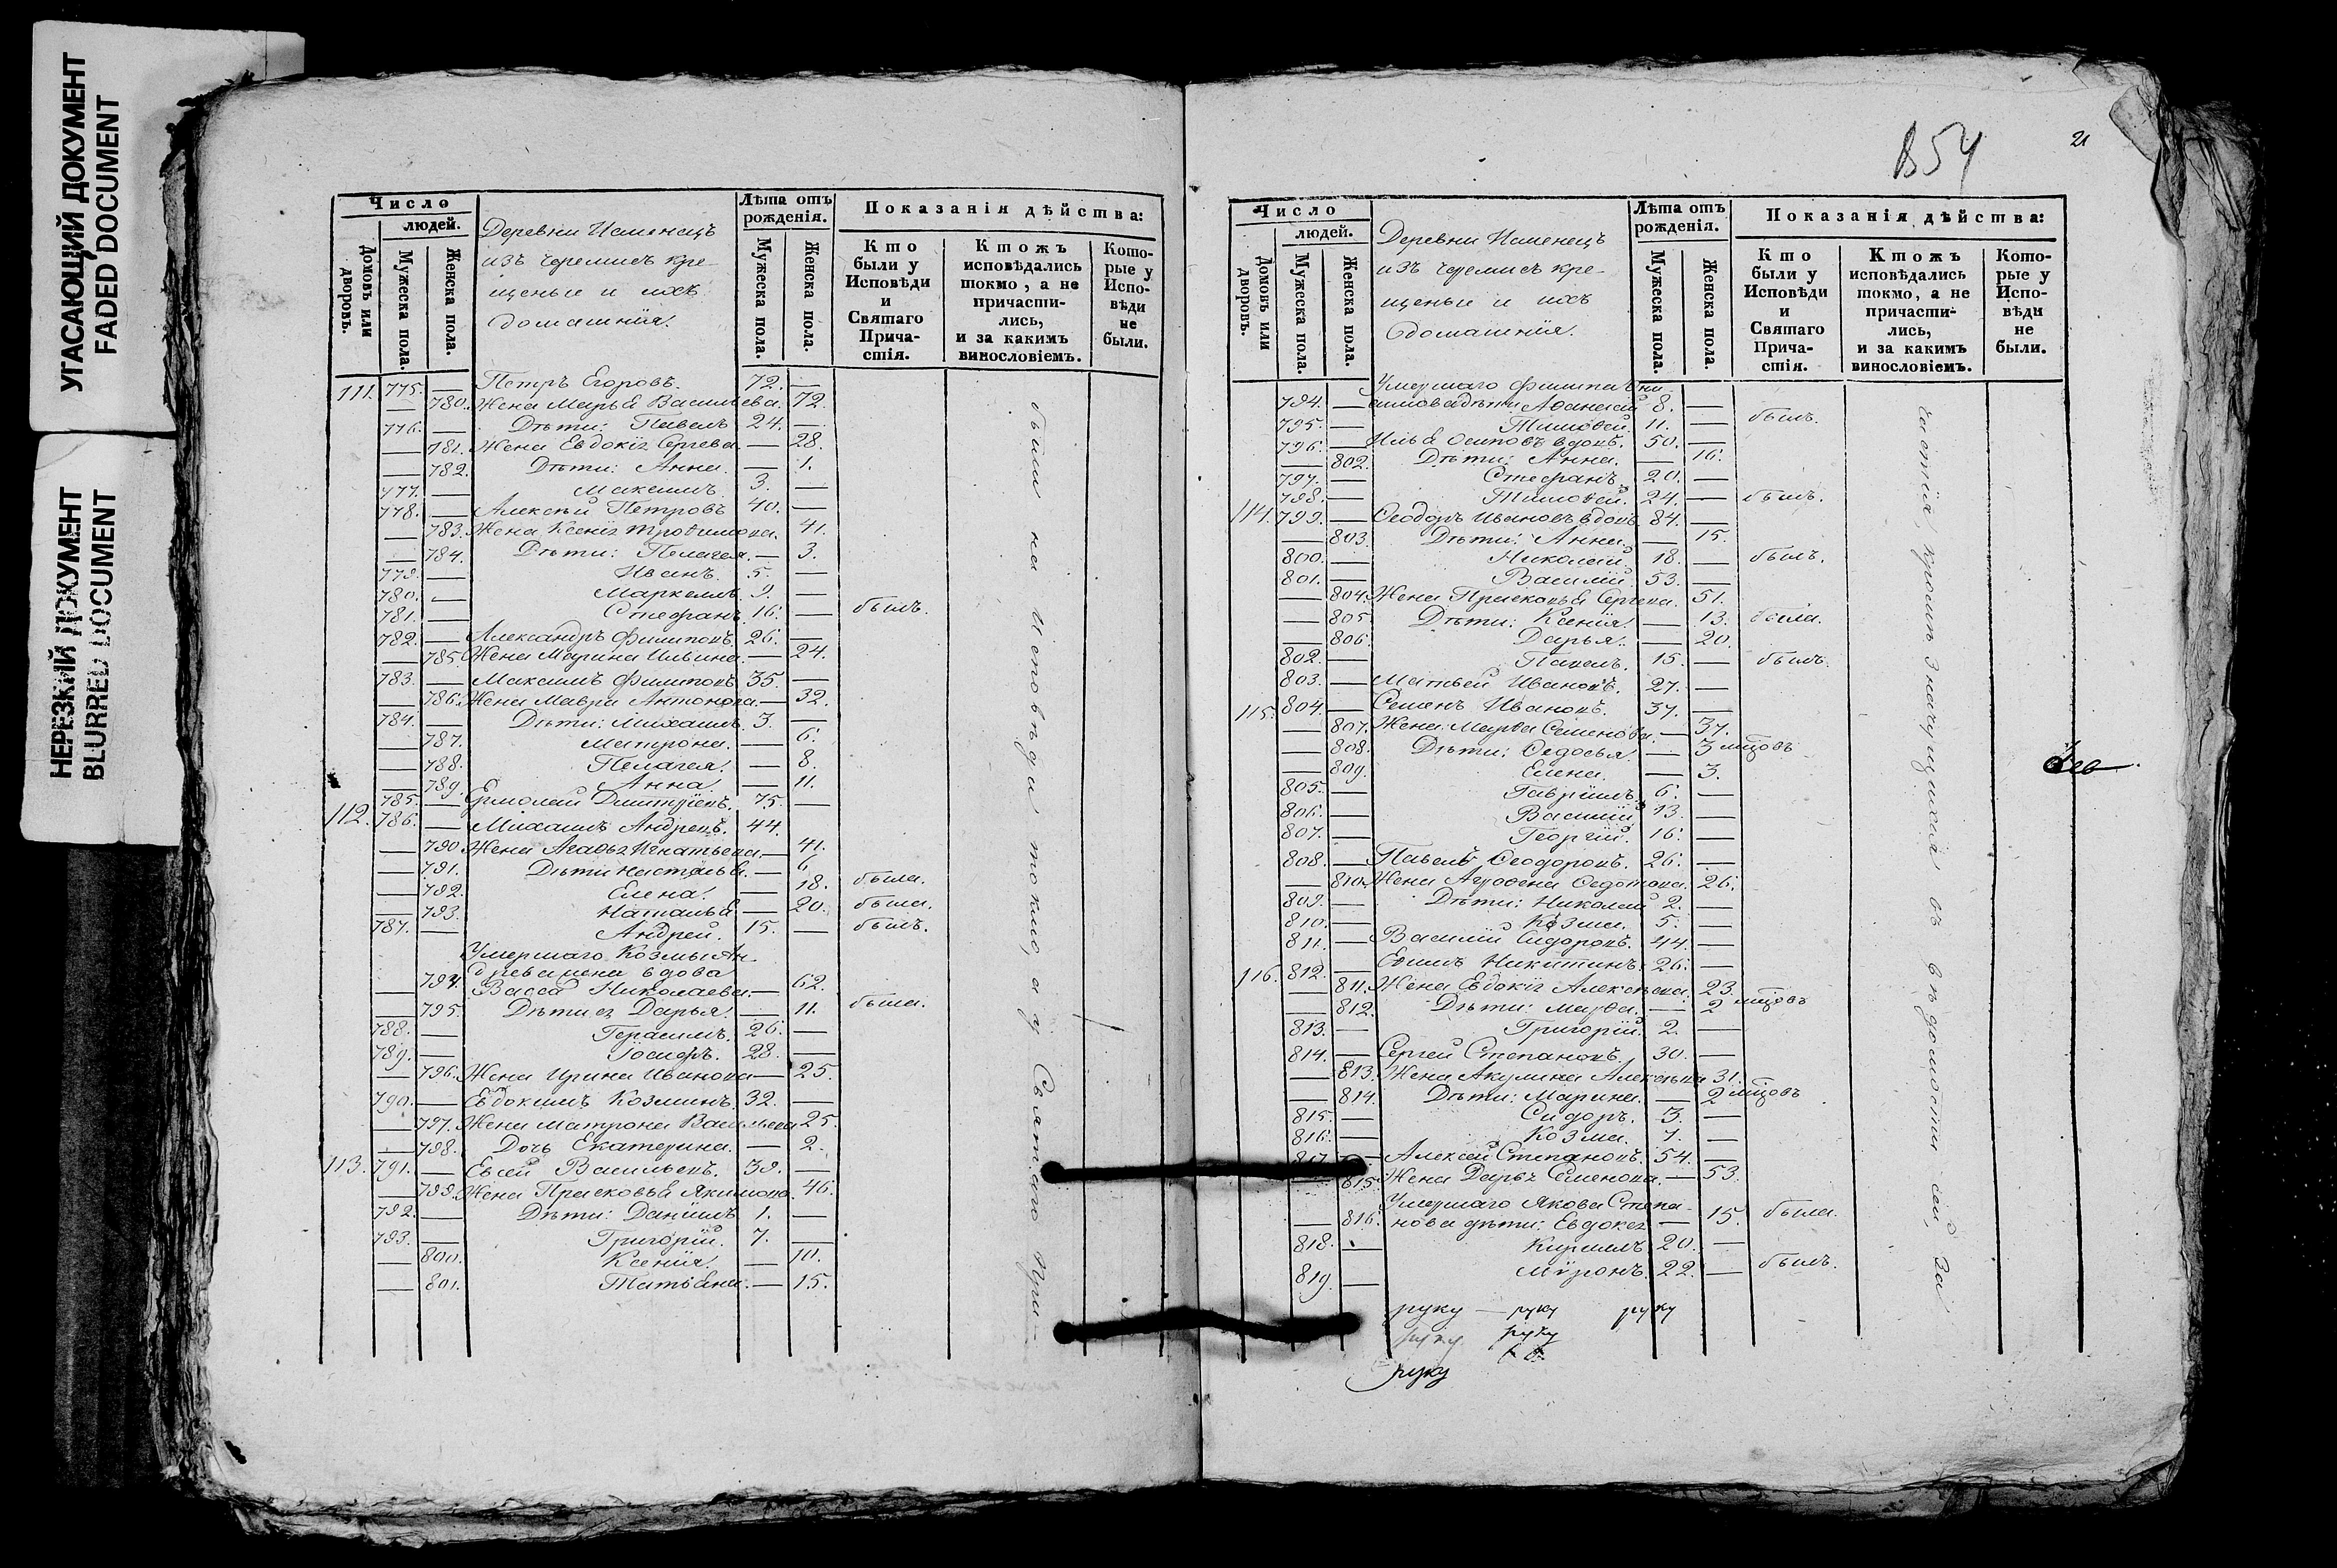 УГАСАЮЩИЙ ДОКУМЕНТ
FADED DOCUMENT
НЕРЕЗКИЙ ДОКУМЕНТ
BLURRED DOCUMENT
Число
людей.
Домовъ или дворовъ.
Мужеска пола.
Женска пола.
Деревни
изъ черемисъ кре-
щеные и ихъ
домашнія.
Лѣта отъ рожденія.
Мужеска пола.
Женска пола.
Показанія дѣйства:
Кто были у Исповѣди и Святаго Причастія.
Ктожъ исповѣдались токмо, а не причастились, и за какимъ винословіемъ.
Которые у Исповѣди не были.
111. 775. — Петръ Егоровъ. 72. —
— 780. Жена Марья Васильева. 72.
776. — Дѣти: Павелъ 24. —
— 781. Жена Евдокія Сергева. — 28.
— 782. Дѣти: Анна. — 1.
777. — Максимъ. 3. —
778. — Алексѣй Петровъ 40. —
— 783. Жена Ксенія Трофимова. 41.
— 784. Дѣти: Пелагея. — 3.
779. — Иванъ. 5. —
780. — Маркеллъ. 9. —
781. — Стефанъ. 16. — былъ.
782. — Александръ Филиповъ. 26. —
— 785. Жена Марина Ильина. — 24.
783. — Максимъ Филиповъ. 35. —
— 786. Жена Мавра Антонова. — 32.
784. — Дѣти: Михаилъ. 3. —
— 787. Матрона. — 6.
— 788. Пелагея. — 8.
— 789. Анна. — 11.
785. — Ермолай Димитріевъ. 75. —
112. 786. — Михаилъ Андреевъ. 44.
— 790. Жена Агафья Игнатьева. — 41.
— 791. Дѣти Настасья. — 6
— 792. Елена. — 18. была.
— 793. Наталья — 20. была.
787. — Андрей. 15. — былъ.
Умершаго Козмы Ан-
— 794. вдова
Васса Николаева. — 62.
— 795. Дѣти ея Дарья. — 11. была.
788. — Герасимъ. 26. —
789. — Іосифъ. 28. —
— 796. Жена Ирина Иванова — 25.
790. — Евдокимъ Козминъ. 32. —
— 797. Жена Матрона Васильева 25.
— 798. Дочь Екатерина. — 2.
113. 791. — Евсей Васильевъ. 39. —
— 799. Жена Прасковья Якимова. 46.
792. — Дѣти: Даніилъ 1. —
793. — Григорій. 7. —
— 800. Ксенія. — 10.
— 801. Татьяна. — 15.
были на Исповѣди токмо, а у Святаго При-
В54
21
Число
людей.
Домовъ или дворовъ.
Мужеска пола.
Женска пола.
Деревни
изъ черемисъ кре-
щеные и ихъ
домашнія.
Лѣта отъ рожденія.
Мужеска пола.
Женска пола.
Показанія дѣйства:
Кто были у Исповѣди и Святаго Причастія.
Ктожъ исповѣдались токмо, а не причастились, и за какимъ винословіемъ.
Которые у Исповѣди не были.
Умершаго Филипа
794. — дѣти: Афанасій 8. — былъ.
795. — Тимофей. 11. —
796. — Илья Осиповъ вдовъ. 50. —
— 802. Дѣти: Анна. — 16.
797. — Стефанъ. 20. —
798. — Тимофей. 24. — былъ.
114. 799. — Феодоръ Ивановъ вдовъ 84. —
— 803. Дѣти: Анна. — 15.
800. — Николай. 18. — былъ.
801. — Василій. 53. —
— 804. Жена Прасковья Сергева. 51.
— 805. Дѣти: Ксенія. — 13. была.
— 806. Дарья. — 20.
802. — Павелъ. 15. — былъ.
803. — Матвей Ивановъ. 27. —
115. 804. — Семенъ Ивановъ. 37. —
— 807. Жена Марфа Семенова. — 37.
— 808. Дѣти: Федосья — 3 мцовъ
— 809. Елена. — 3.
805. — Гавріилъ. 6. —
806. — Василій 13. —
807. — Георгій. 16. —
808. — Павелъ Феодоровъ. 26. —
— 810. Жена Агрофена Федотова. 26.
809. — Дѣти: Николай 2. —
810. — Козма. 5. —
811. — Василій Сидоровъ. 44. —
116. 812. — Ефимъ Никитинъ. 26. —
— 811. Жена Евдокія Алексѣева. 23.
— 812. Дѣти: Марфа. — 2 мцовъ
813. — Григорій. 2. —
814. — Сергей Степановъ. 30. —
— 813. Жена Акулина Алексѣева 31.
— 814. Дѣти: Марина. — 2 мцовъ
815. — Сидоръ. 3. —
816. — Козма. 7. —
817. — Алексей Степановъ. 54. —
— 815. Жена Дарья Семенова. — 53.
Умершаго Якова Степа-
— 816. нова дѣти: Евдокея — 15. была.
818. — Кирилъ. 20. —
819. — Миронъ. 22. — былъ.
частія кромѣ значущихся въ вѣдомости сей, за
руку — руку руку
руку руку
руку